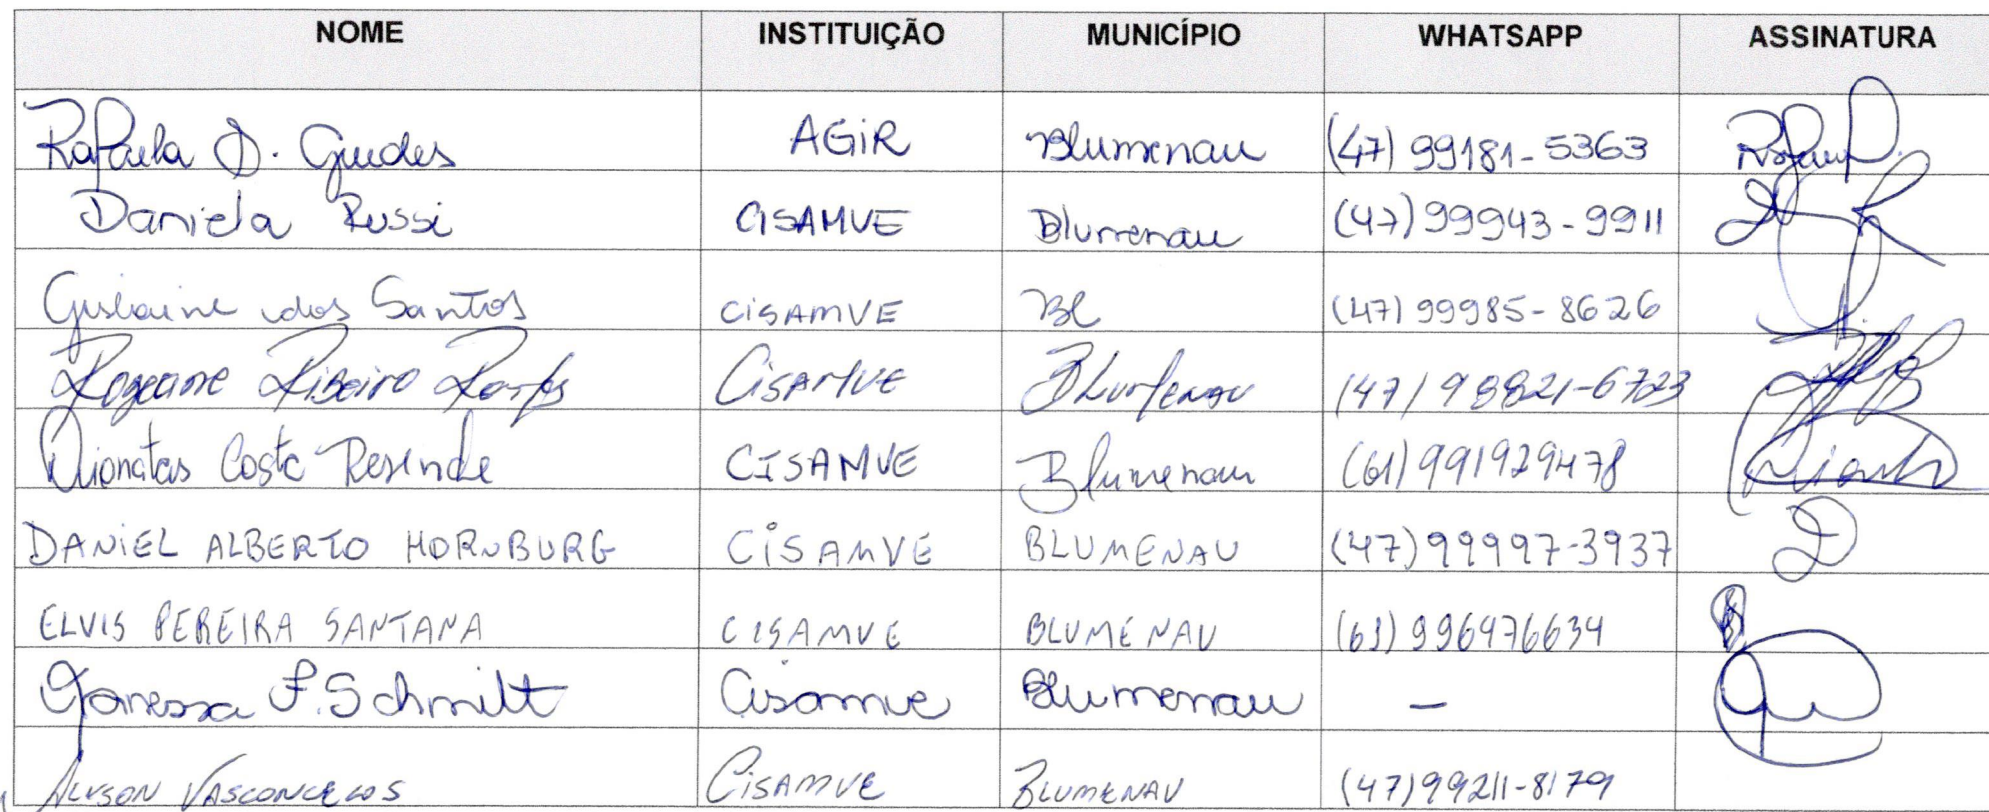 NOME INSTITUIÇÃO MUNICÍPIO WHATSAPP ASSINATURA
Rafaela D. Guedes AGIR Blumenau (47) 99181-5363
Daniela Russi CISAMVE Blumenau (47) 99943-9911
Gislaine dos Santos CISAMVE Bl (47) 99985-8626
Rozeane Ribeiro CISAMVE Blumenau (47) 98821-6723
Dionatas Costa Resende CISAMVE Blumenau (61) 991929478
DANIEL ALBERTO HORNBURG CISAMVE BLUMENAU (47) 99997-3937
ELVIS PEREIRA SANTANA CISAMVE BLUMENAU (61) 996976634
Vanessa F. Schmitt Cisamve Blumenau -
ALYSON VASCONCELOS CISAMVE BLUMENAU (47) 99211-8179